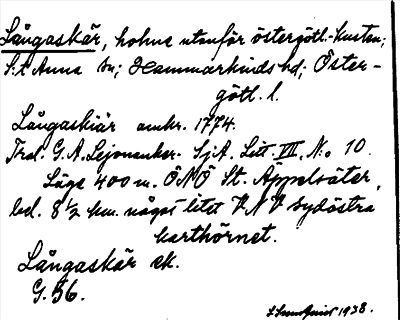 Långaskär, holme utanför östergötl.-kusten;
S:t Anna sn; Hammarkinds hd; Öster-
götl. l.
Långaskiär omkr. 1774.
Trol. G. A. Lejonanker. SjA. Litt VII, N:o 10.
Läge 400 m. ÖNÖ St. Äppelsäter,
bel. 8 ½ km. något litet VNV sydöstra
karthörnet.
Långaskär ek.
G. 56.
1938.